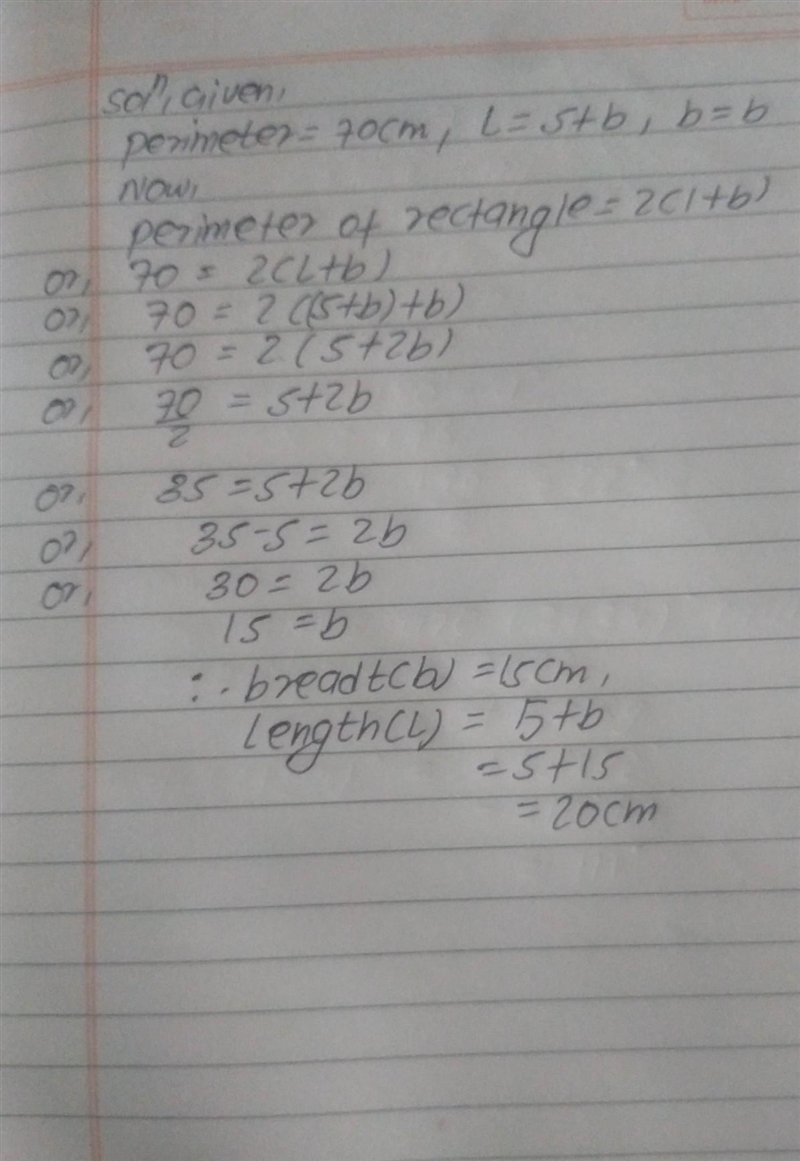 Solⁿ, Given,
perimeter = 70cm, L = 5+b, b = b
Now,
perimeter of rectangle = 2(l+b)
or, 70 = 2(L+b)
or, 70 = 2((5+b)+b)
or, 70 = 2(5+2b)
or, 70/2 = 5+2b
or, 35 = 5+2b
or, 35-5 = 2b
or, 30 = 2b
15 = b
∴ breadt(b) = 15cm,
length(L) = 5+b
= 5+15
= 20cm